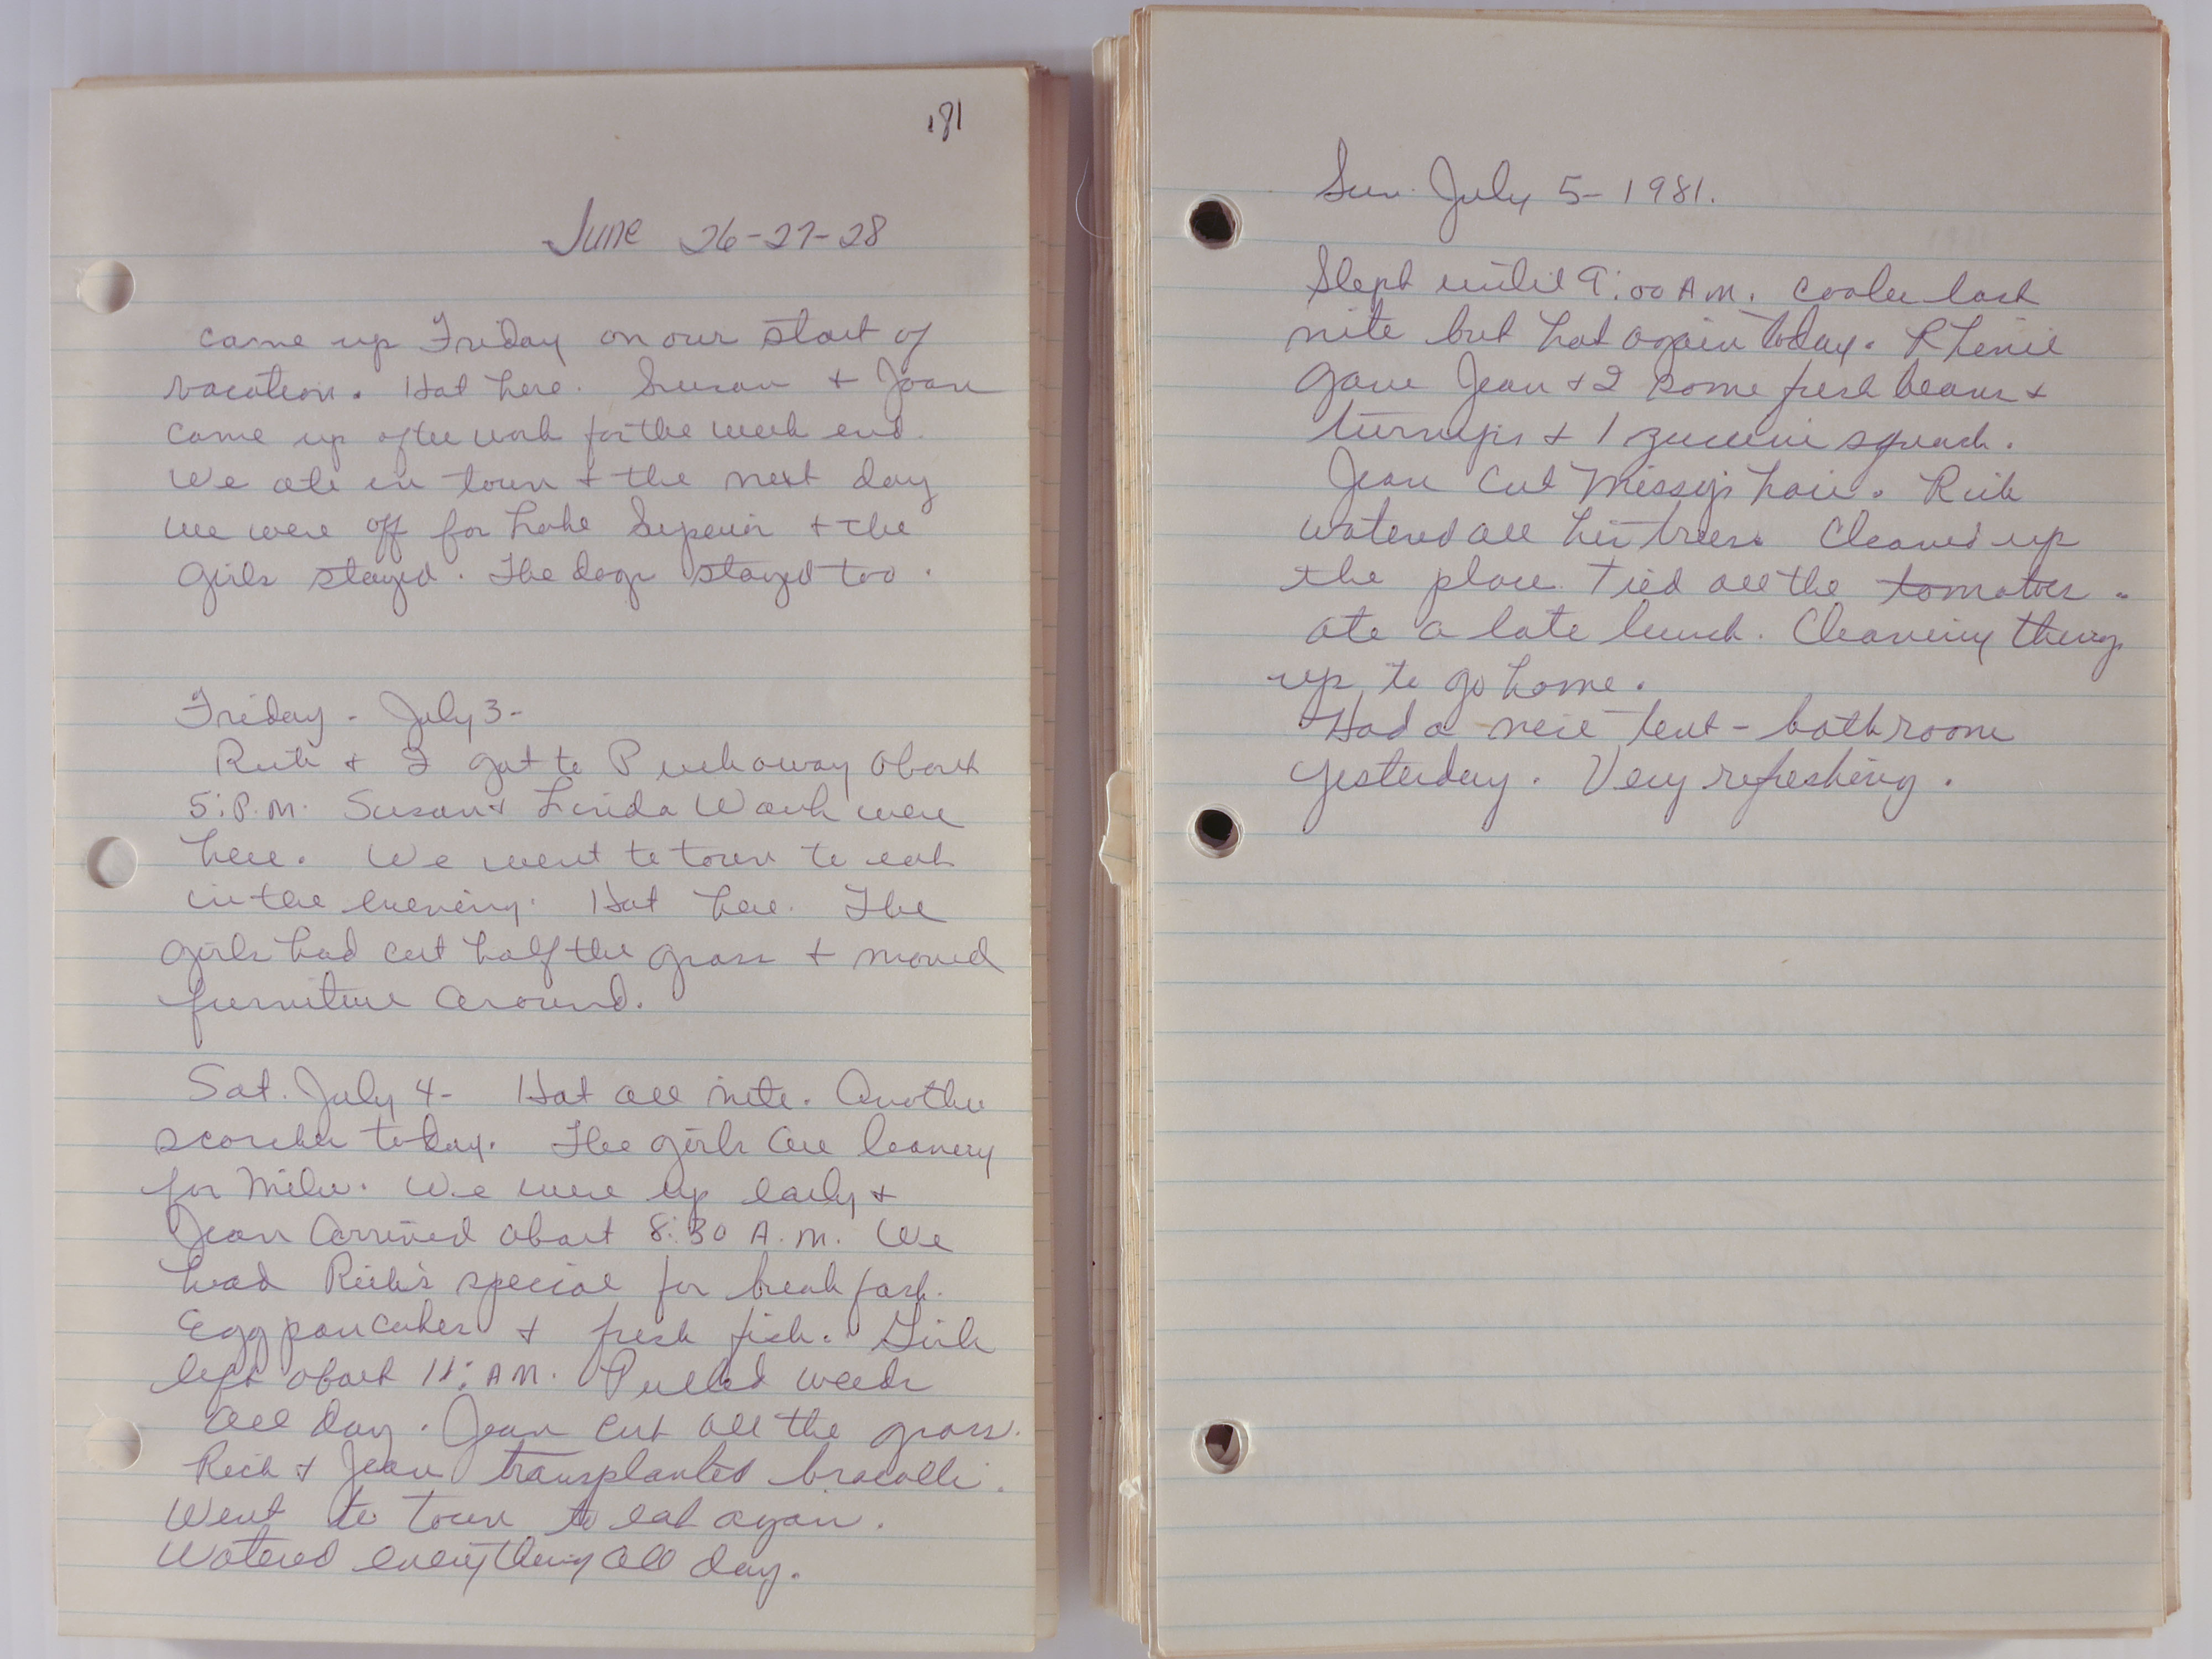 '81
June 26-27-28
came up Friday on our start of
vacation. Hot here. Susan + Joan
came up after work for the week end.
We ate in town + the next day
we were off for Lake Superior + the
girls stayed. The dogs stayed too.
Friday - July 3-
Rich + I got to Puckaway about
5:P.M. Susan + Linda Wark were
here. We went to town to eat
in the evening. Hot here. The
girls had cut half the grass + moved
furniture around.
Sat. July 4- Hot all nite. Another
scorcher today. The girls are leaving
for Milw. We were up early +
Jean arrived about 8:30 A.M. We
had Rich's special for breakfast.
Egg pancakes + fresh fish. Girls
left about 11: AM. Pulled weeds
all day. Jean cut all the grass.
Rich + Jean transplanted brocolli.
Went to town to eat again.
Watered everything all day.
Sun. July 5- 1981.
Slept until 9:00 AM. cooler last
nite but hot again today.
gave Jean + I some fresh beans +
turnips + 1 zuccini squash.
Jean cut Missy's hair. Rich
watered all his trees. Cleaned up
the place. Tied all the tomatoes.
ate a late lunch. Cleaning things
up to go home.
Had a nice tent-bathroom
yesterday. Very refreshing.